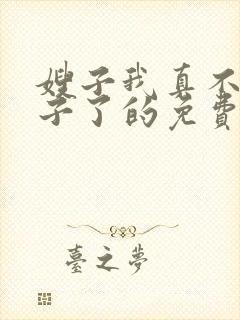 嫂子我真不
子了的免費
臺之夢